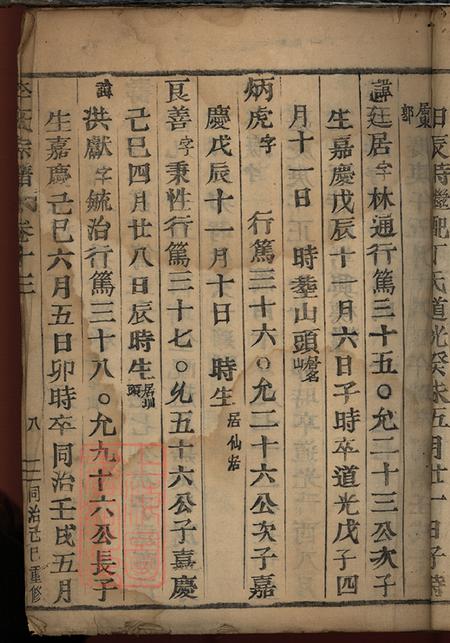 日辰時繼配丁氏道光癸未五月廿一日子時
居東郭
諱廷居字林通行篤三十五○允二十三公次子
生嘉慶戊辰十一月六日子時卒道光戊子四
月十一日 時塟山頭
炳虎字 行篤三十六○允二十六公次子嘉
慶戊辰十一月十日 時生居仙岩
艮善字秉性行篤三十七○允五十六公子嘉慶
己巳四月廿八日辰時生居塘頭
諱洪獻字毓治行篤三十八○允九十六公長子
生嘉慶己巳六月五日卯時卒同治壬戌五月
卷十三
八
同治己巳重修